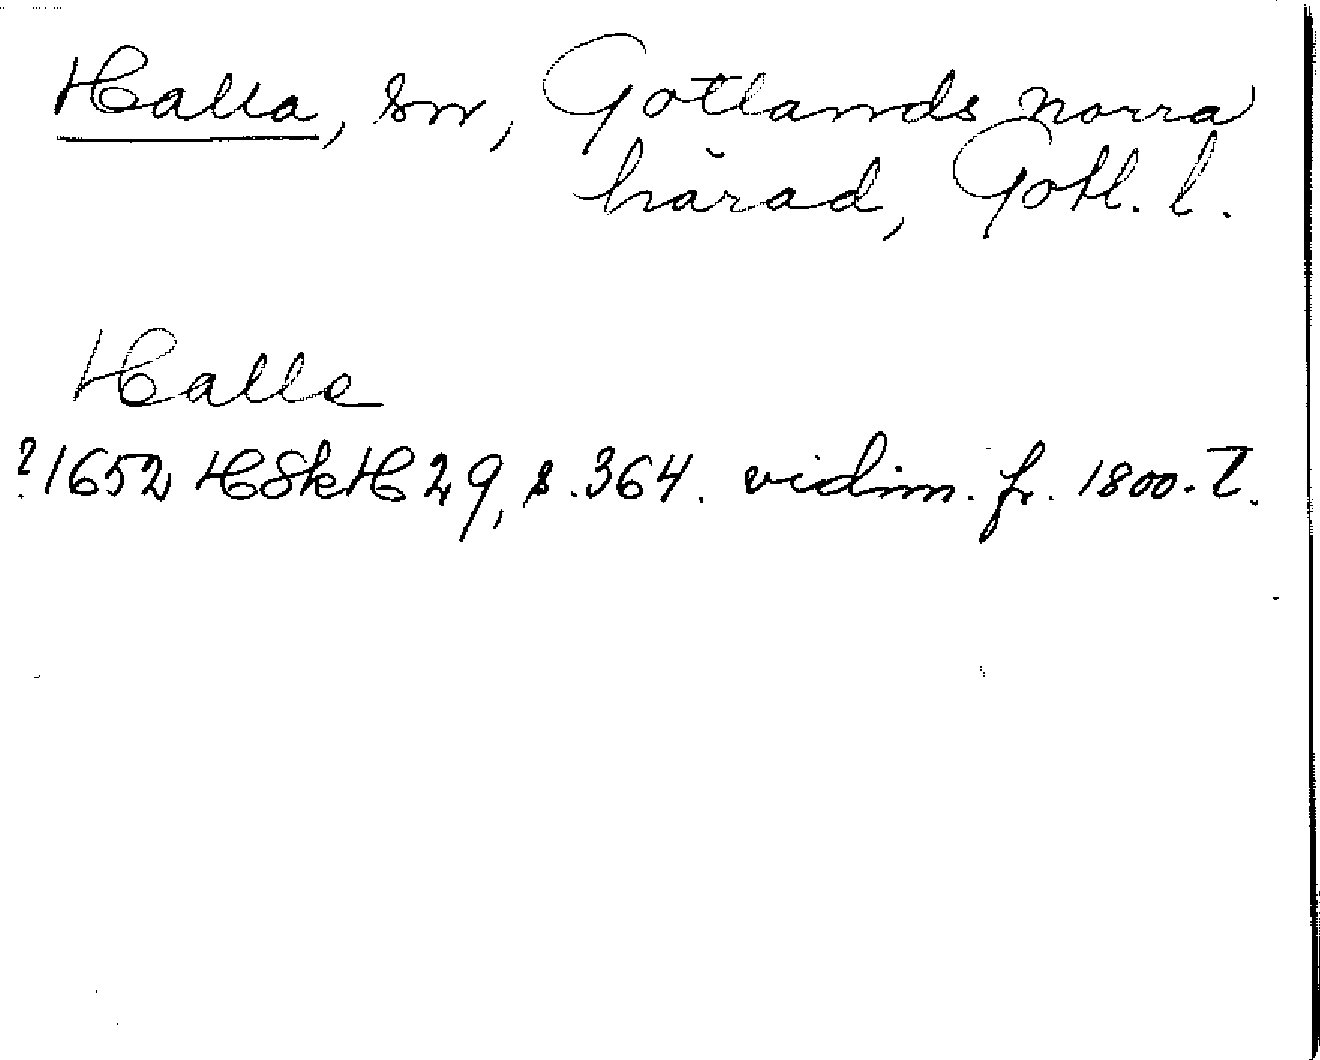 Halla, sn, Gotlands norra
härad, Gotl. l.
Halle
?1652 HSkH 29, s. 364. vidim. fr. 1800-t.